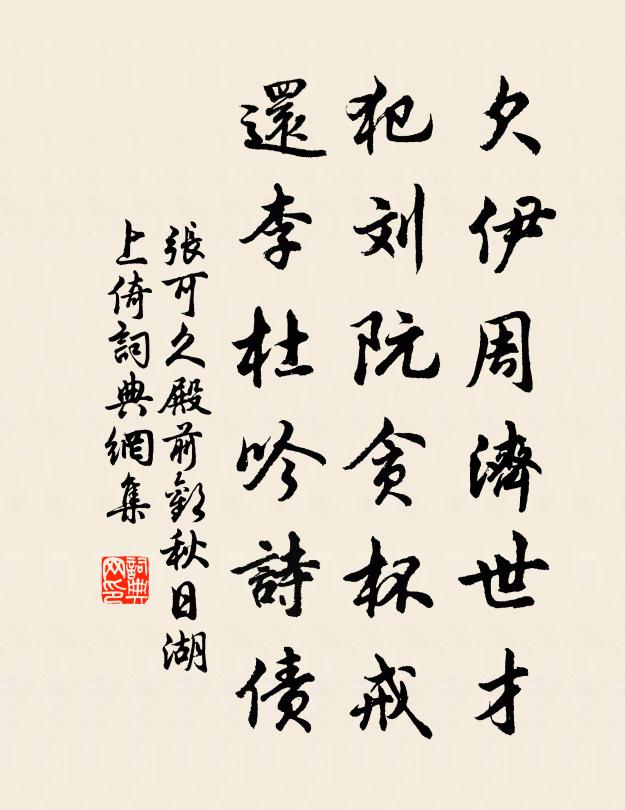 欠伊周濟世才
犯刘阮贪杯戒
還李杜吟詩債
張可久殿前歡秋日湖
上倚詞典網集
詞典网印